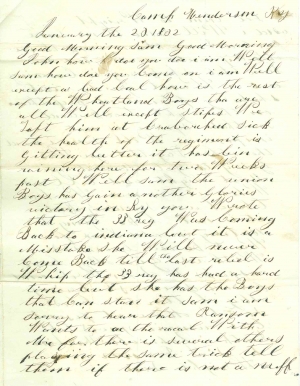 Camp Henderson Ky
January the 28 1862
Good Morning Sam Good Morning
John how do you do i am Well
Sam how do you Come on i am Well
except a bad Coal how is the rest
of the Wheatland Boys tha are
all Well except Stipes We
Left him at Crab orchard Sick
the health of the regiment is
Gitting better it has bin
raining here for two Weeks
past Well Sam the union
Boys has Gain another Glories
victory in Ky you Wrote
that the B Was Coming
Back to indiana but it is a
Misstake she Will never
Come Back till the last rebel is
Whip the B has had a hard
time but she has the Boys
that Can stand it Sam i am
Sorry to hear that Ransom
Wants to With
there is several others
playing the same trick tell
them if there is not a